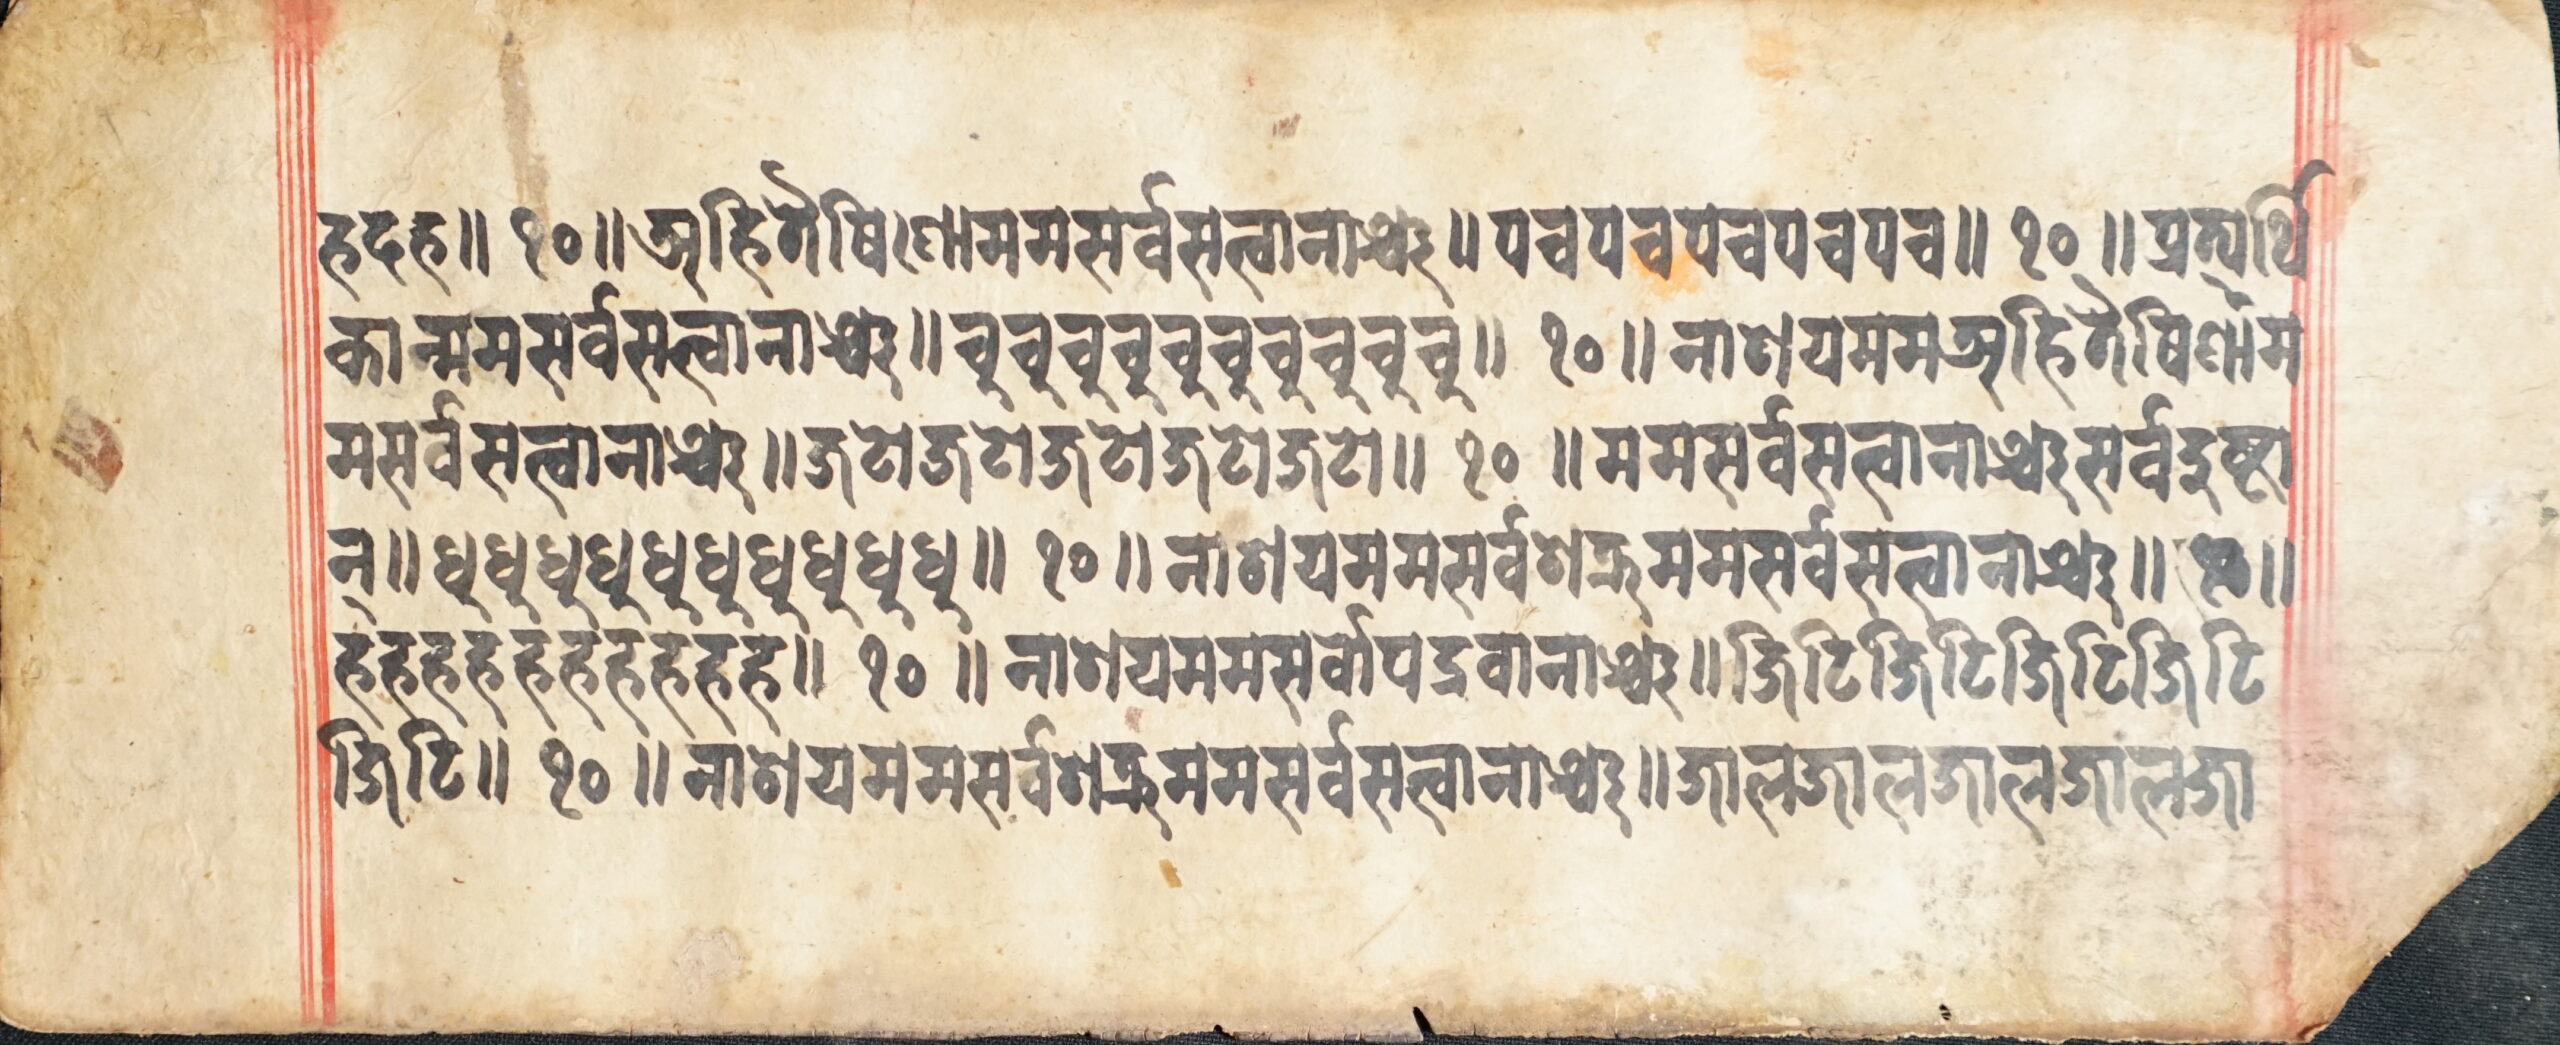 हदह॥ १०॥अहितैषिणोममसर्वसत्वानाञ्च॥पचपचपचपचपच॥ १०॥प्रत्यर्थि
कान्ममसर्वसत्वानाञ्च॥चुचुचुचुचुचुचुचुचुचु॥ १०॥नाशयममअहितैषिणोम
मसर्वसत्वानाञ्च॥जटोजटोजटोजटोजटो॥ १० ॥ममसर्वसत्वानाञ्चसर्वदुष्टा
न्॥धुधुधुधुधुधुधुधुधुधु॥ १०॥नाशयममसर्वशत्रूममसर्वसत्वानाञ्च॥ ॥
हहहहहहहहहह॥ १० ॥नाशयममसर्वोपद्रवानाञ्च॥जिटिजिटिजिटिजिटि
जिटि॥ १० ॥नाशयममसर्वशत्रूममसर्वसत्वानाञ्च॥जालजालजालजालजा